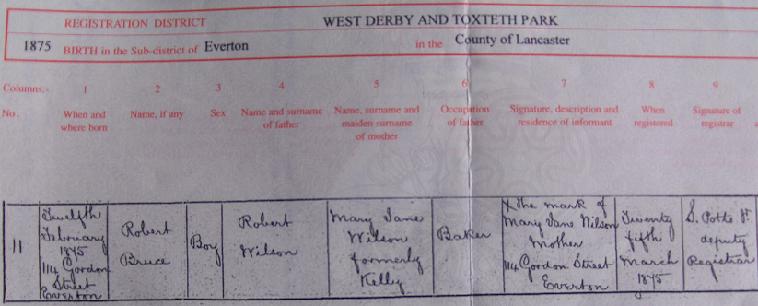 REGISTRATION DISTRICT WEST DERBY AND TOXTETH PARK
1875 BIRTH in the Sub-district of Everton in the County of Lancaster
Columns:- 1 2 3 4 5 6 7 8 9
No. When and where born Name, if any Sex Name and surname of father Name, surname and maiden surname of mother Occupation of father Signature, description and residence of informant When registered Signature of registrar
11
Twelfth
February
1875
114 Gordon
Street
Everton
Robert
Bruce
Boy
Robert
Wilson
Mary Jane
Wilson
formerly
Kelly
Baker
X the mark of
Mary Jane Wilson
Mother
114 Gordon Street
Everton
Twenty
fifth
March
1875
S. Potts
deputy
Registrar